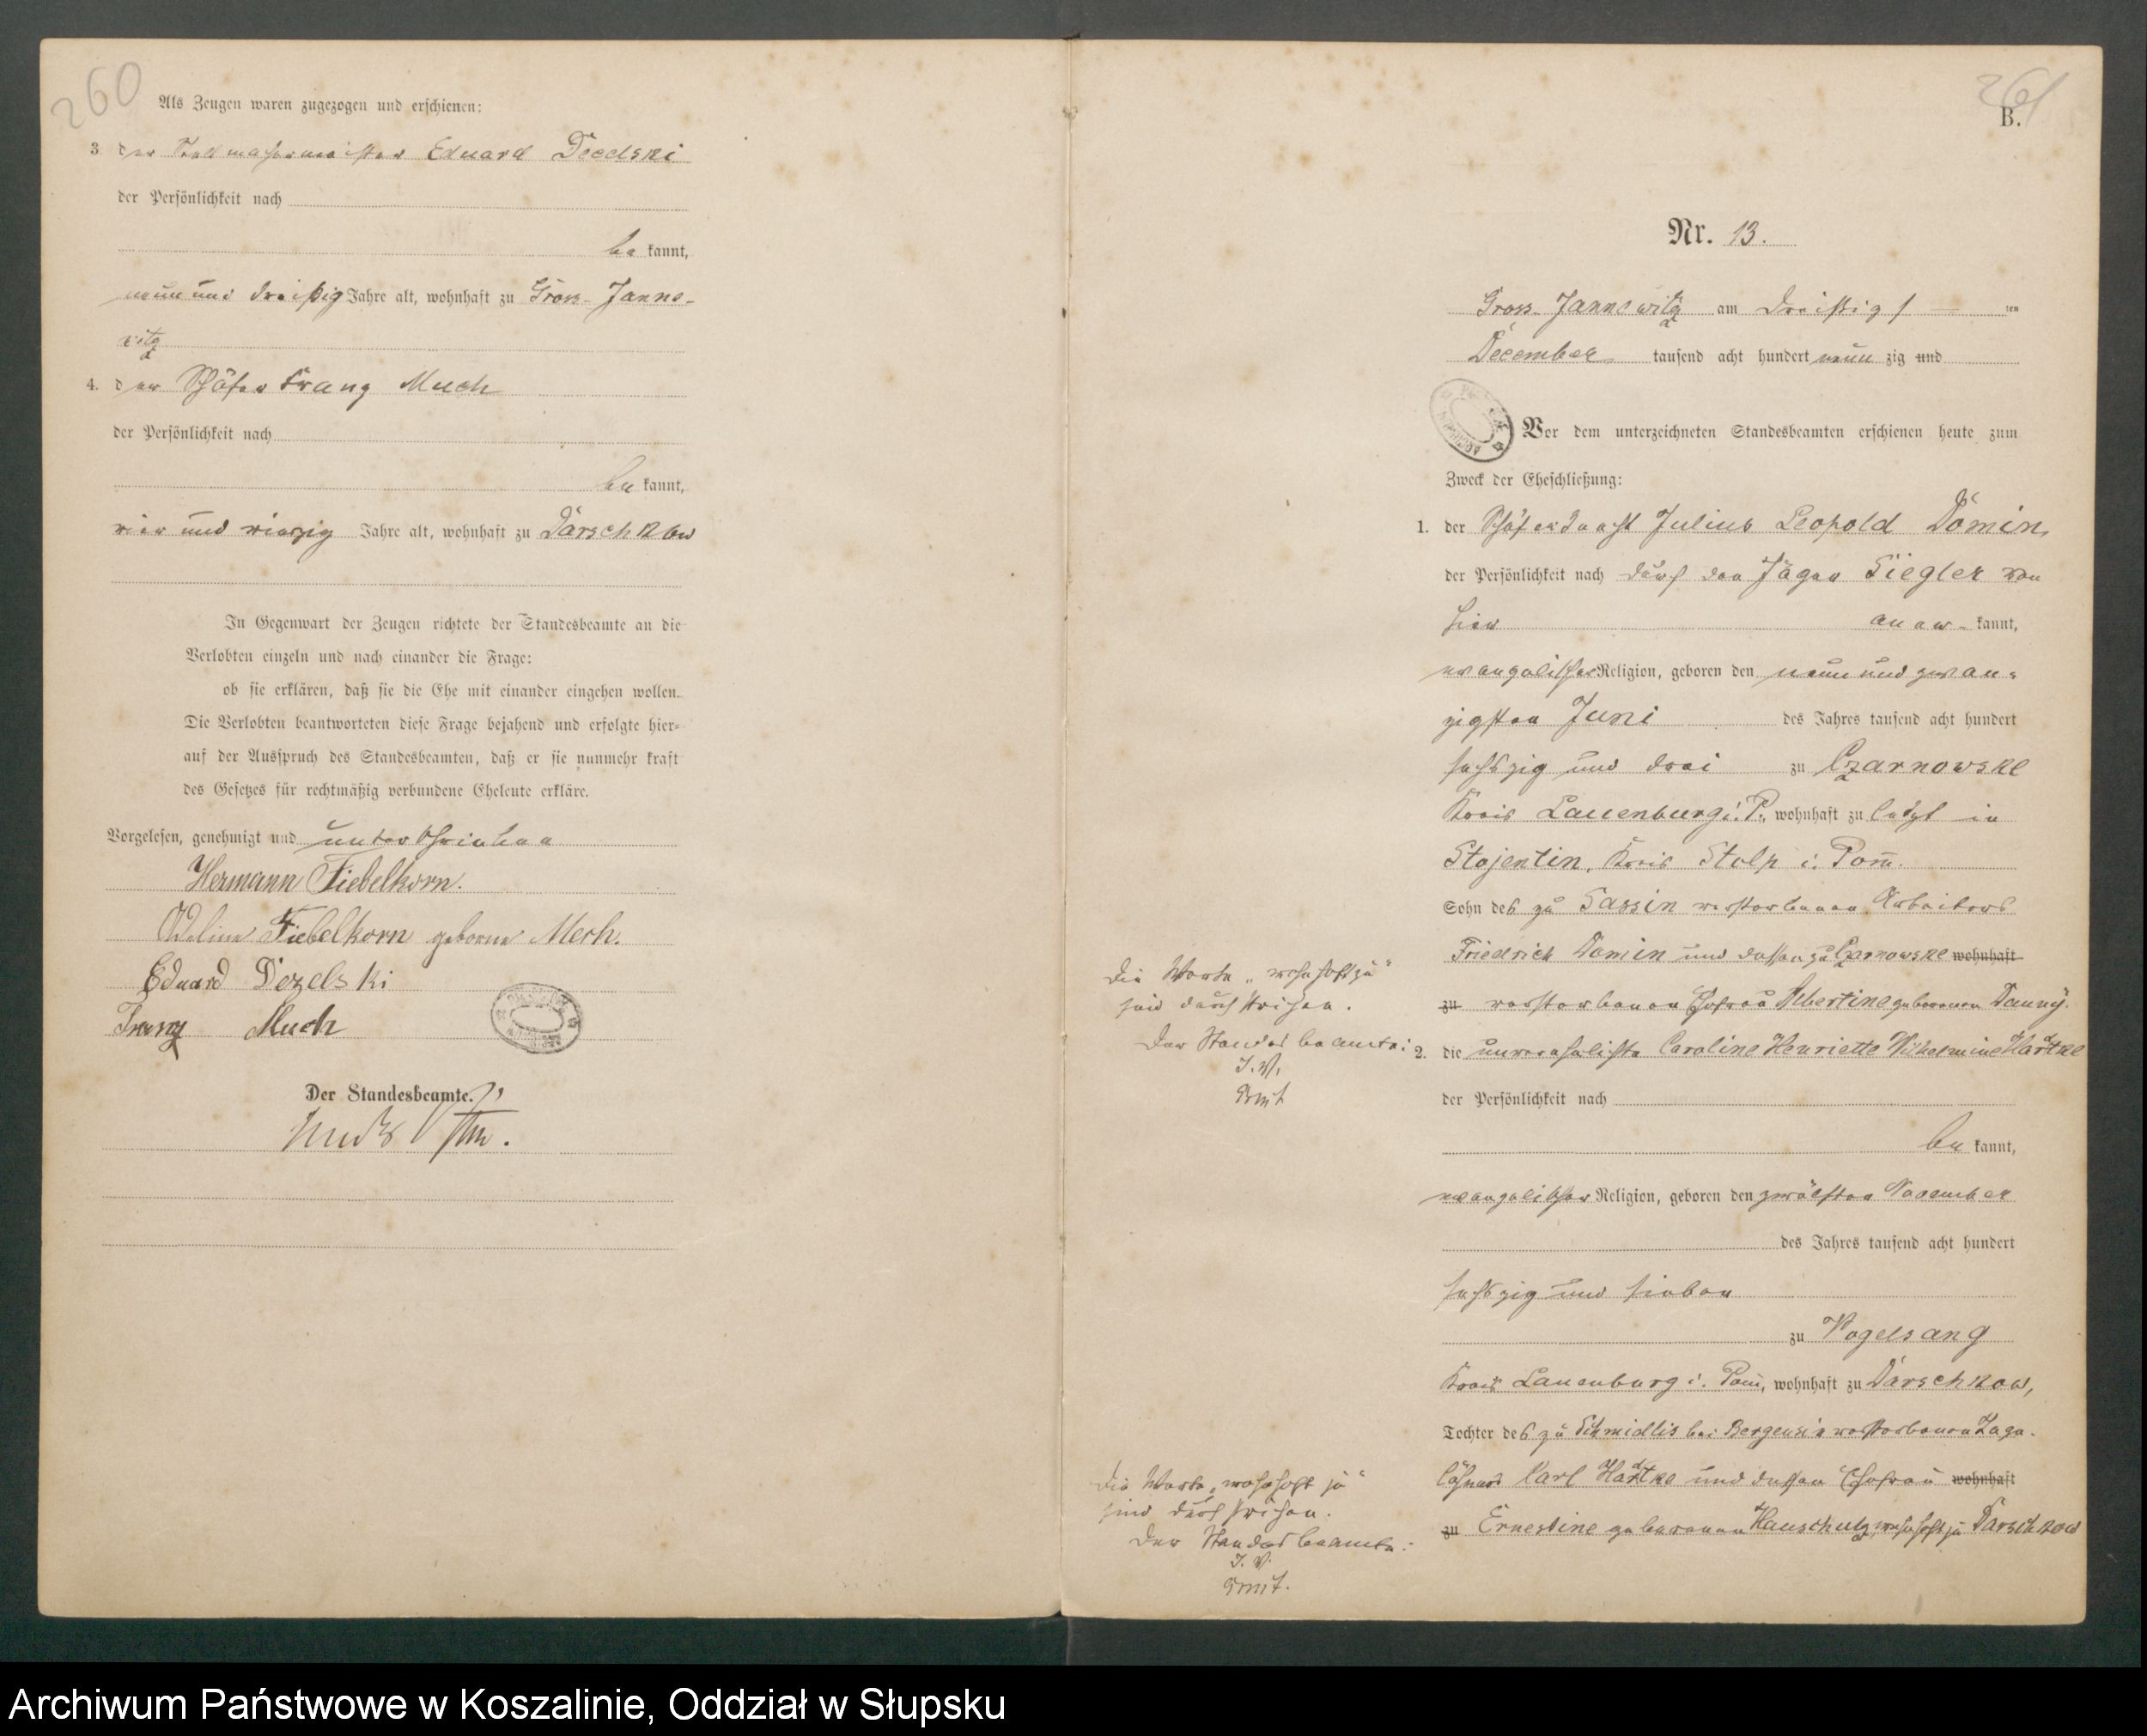 260
Als Zeugen waren zugezogen und erschienen:
3. der Stellmachermeister Eduard Dzedski
der Persönlichkeit nach
be kannt,
neun und dreißig Jahre alt, wohnhaft zu Gross-Janne-
witz
4. der Schäfer Franz Much
der Persönlichkeit nach
be kannt,
vier und vierzig Jahre alt, wohnhaft zu Darschkow
In Gegenwart der Zeugen richtete der Standesbeamte an die
Verlobten einzeln und nach einander die Frage:
ob sie erklären, daß sie die Ehe mit einander eingehen wollen.
Die Verlobten beantworteten diese Frage bejahend und erfolgte hier-
auf der Ausspruch des Standesbeamten, daß er sie nunmehr kraft
des Gesetzes für rechtmäßig verbundene Eheleute erkläre.
Vorgelesen, genehmigt und unterschrieben
Hermann Fiebelkorn.
Fiebelkorn geborne Merh.
Eduard Dezelski
Franz Much
Der Standesbeamte.
261
B.
Nr. 13.
Gross-Jannewitz am dreißig sten
December tausend acht hundert neun zig und
Vor dem unterzeichneten Standesbeamten erschienen heute zum
Zweck der Eheschließung:
1. der Schäferknecht Julius Leopold Domin,
der Persönlichkeit nach durch den Jäger Siegler von
hier aner- kannt,
evangelischer Religion, geboren den neun und zwan-
zigsten Juni des Jahres tausend acht hundert
sechszig und drei zu Czarnowske
Kreis Lauenburg i. P., wohnhaft zu letzt in
Stojentin, Kreis Stolp i. Pom.
Sohn des zu Sassin verstorbenen Arbeiters
Friedrich Domin und dessen zu Czarnowske wohnhaft
zu verstorbenen Ehefrau Albertine geborenen Danny.
Die Worte „wohnhaft zu"
sind durchstrichen.
Der Standesbeamte:
I. V.
2. die unverehelichte Caroline Henriette Wilhelmine Hardtke
der Persönlichkeit nach
be kannt,
evangelischer Religion, geboren den zwölften November
des Jahres tausend acht hundert
sechszig und sieben
zu Vogelsang
Kreis Lauenburg i. Pom, wohnhaft zu Darschkow,
Tochter des zu Schmidlis bei Bergensin verstorbenen Tage-
löhners Karl Hardtke und dessen Ehefrau wohnhaft
zu Ernestine geborenen Hauschulz, wohnhaft zu Darschkow
Die Worte „wohnhaft zu"
sind durchstrichen.
Der Standesbeamte:
I. V.
Archiwum Państwowe w Koszalinie, Oddział w Słupsku